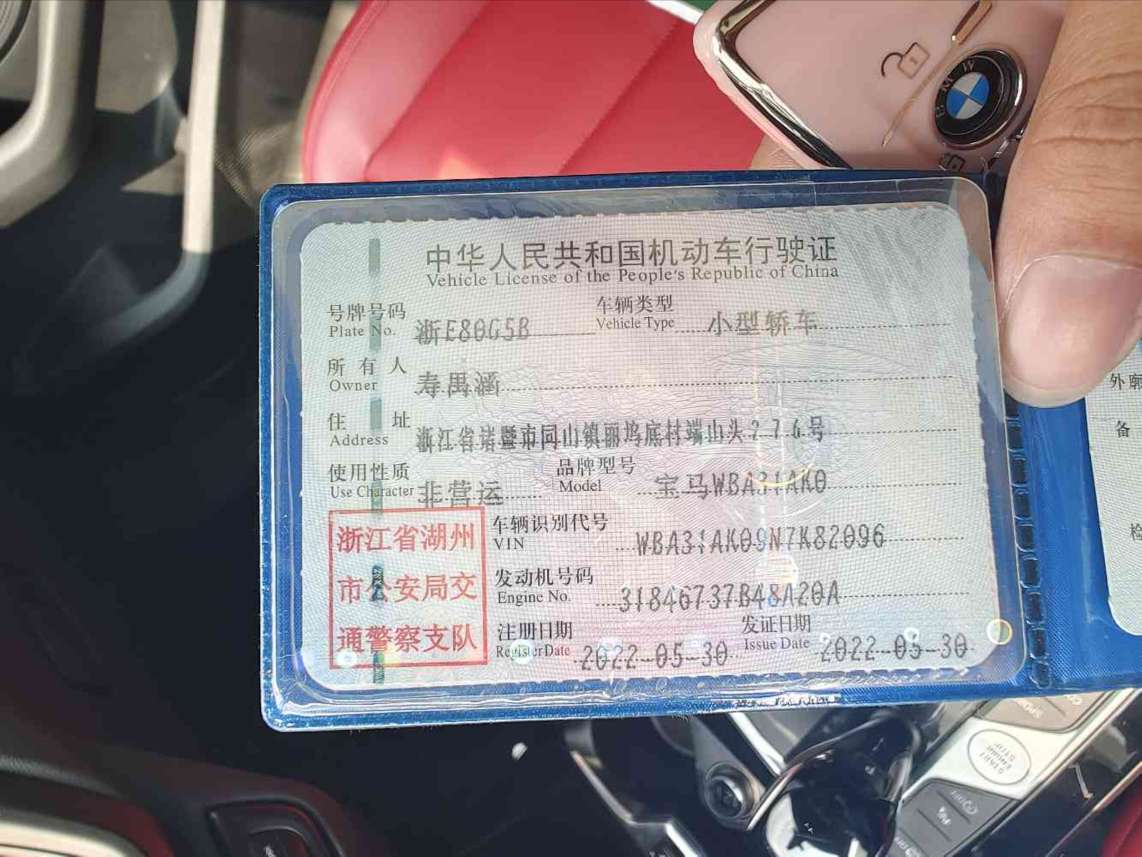 BMW
中华人民共和国机动车行驶证
Vehicle License of the People's Republic of China
号牌号码 浙E80G5B 车辆类型 小型轿车
Plate No. Vehicle Type
所有人 寿禺涵
Owner
住址 浙江省诸暨市同山镇丽坞底村端山头276号
Address
使用性质 非营运 品牌型号 宝马WBA31AK0
Use Character Model
浙江省湖州
市公安局交
通警察支队
车辆识别代号 WBA31AK09N7K82096
VIN
发动机号码 31846737B48A20A
Engine No.
注册日期 2022-05-30 发证日期 2022-05-30
Register Date Issue Date
外廓
备
检
SPORT
START
ENGINE
STOP
OFF
P